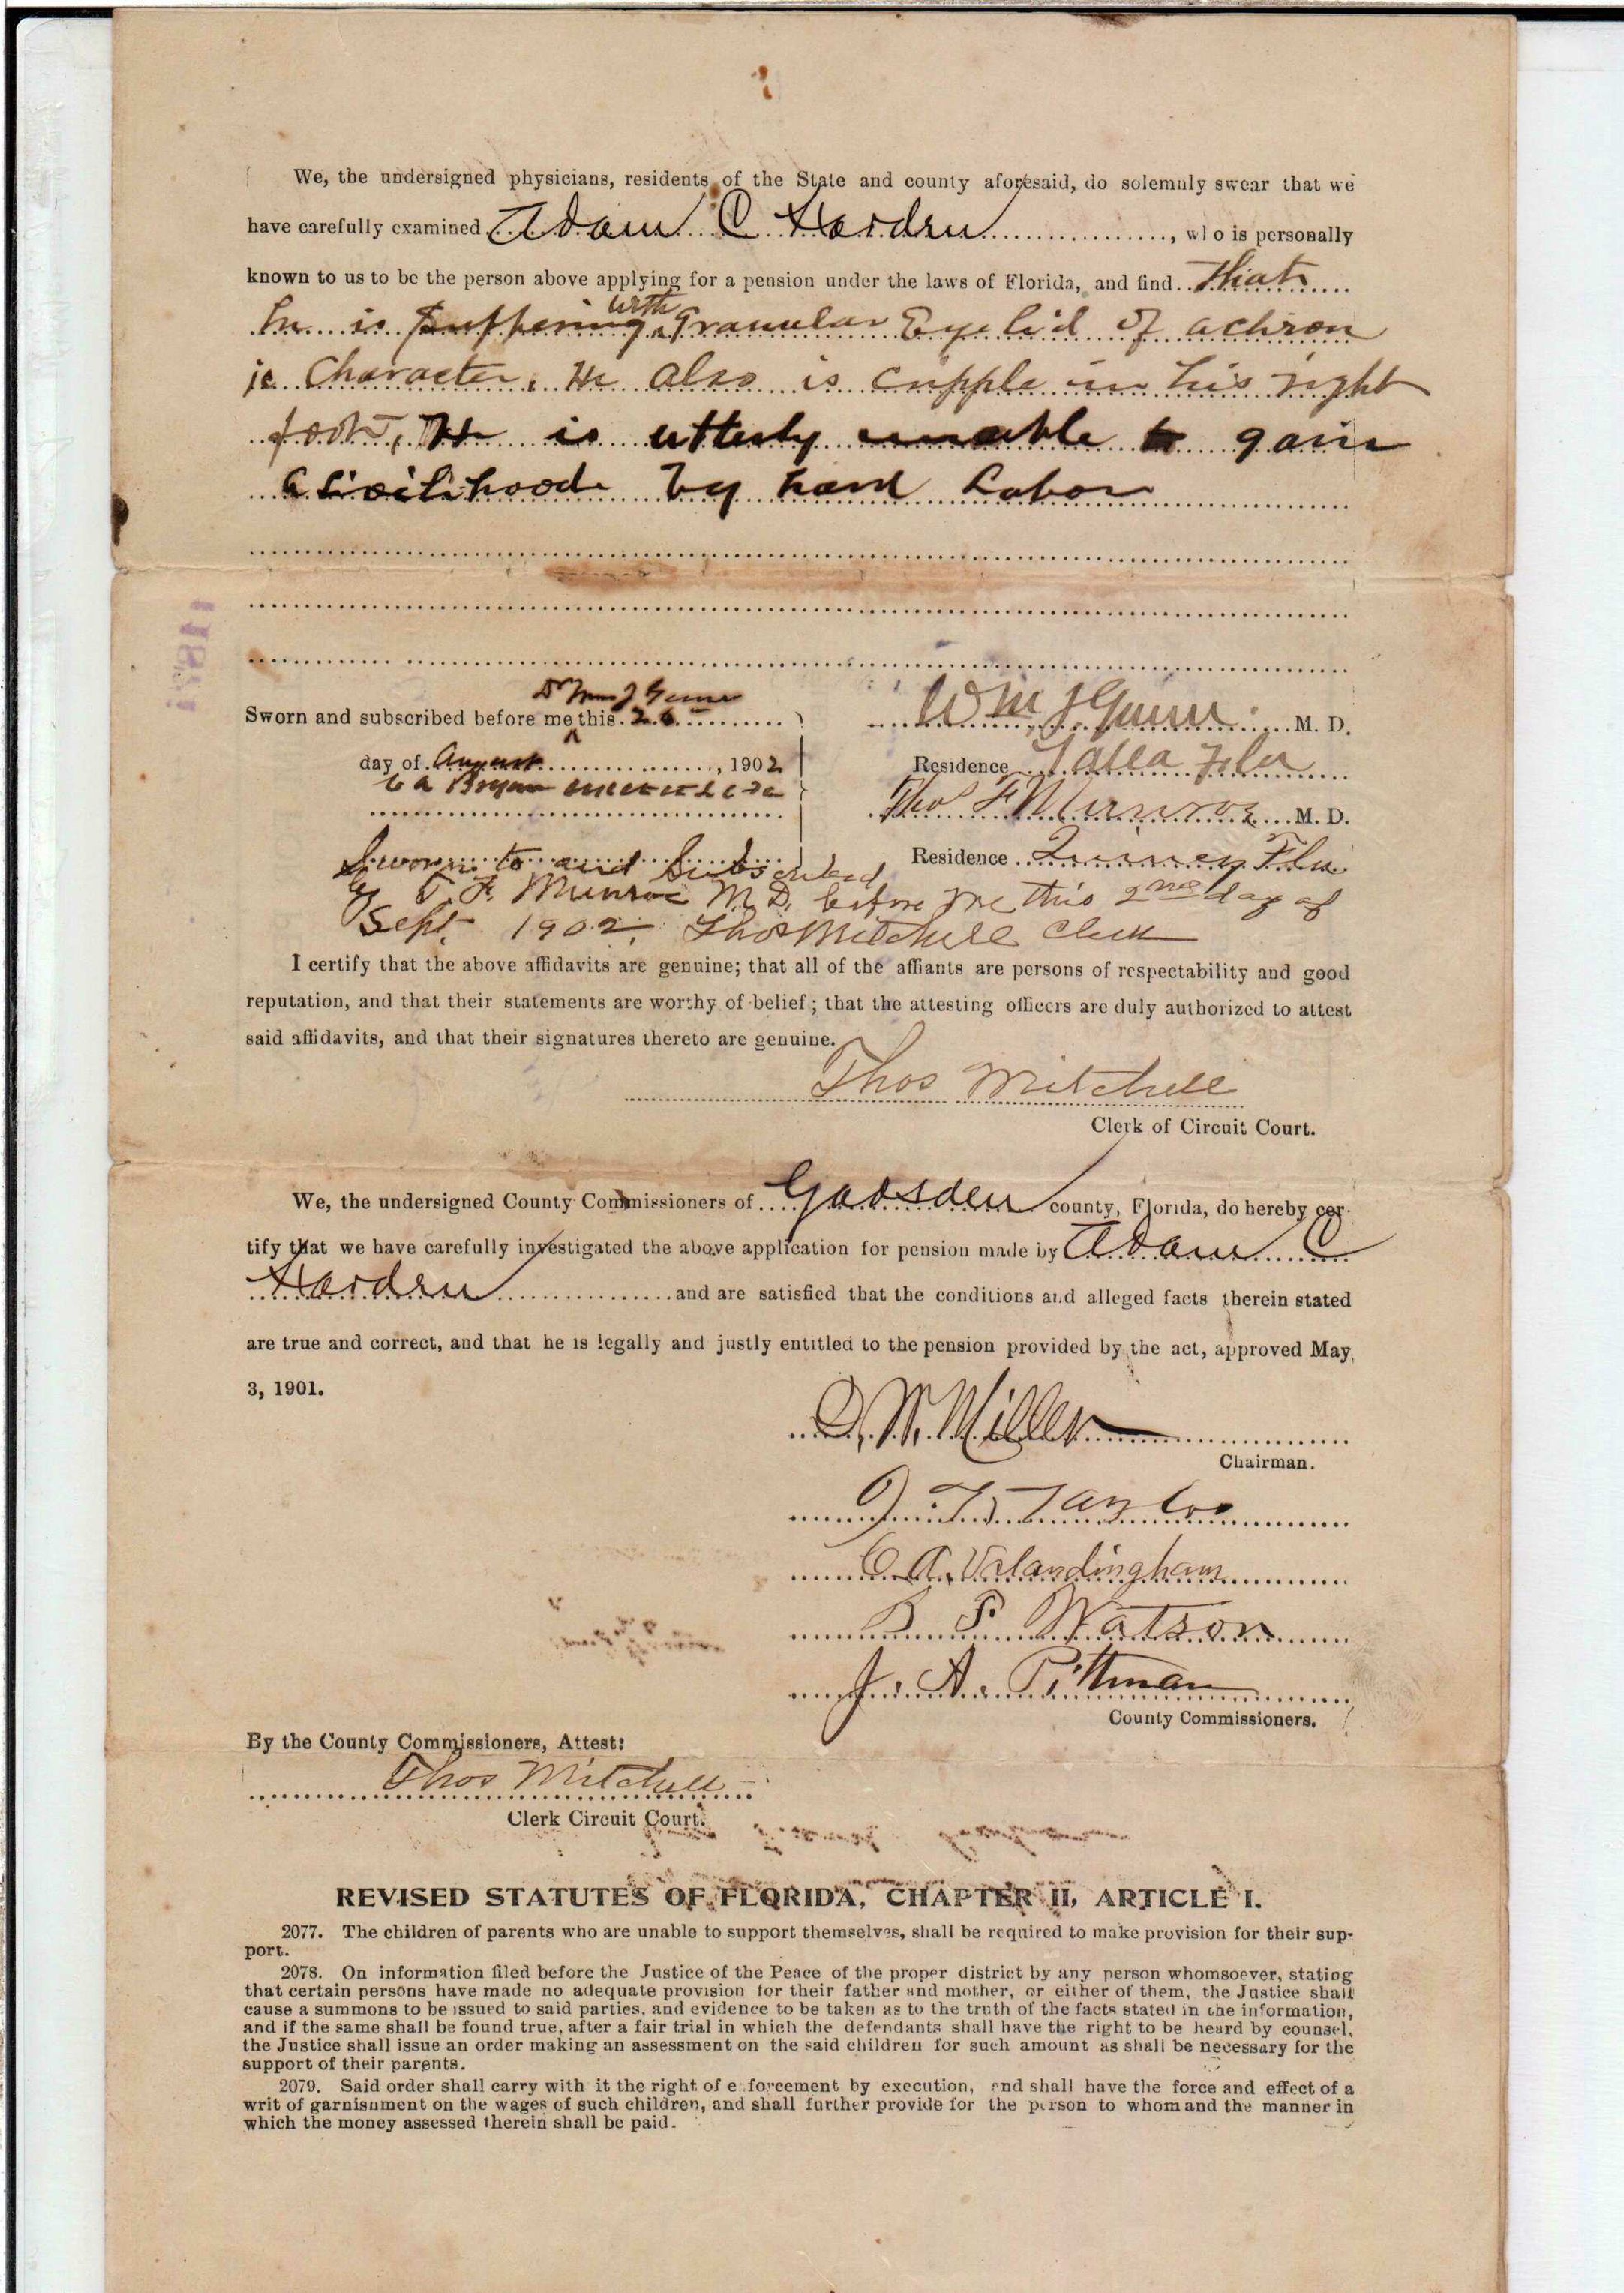 We, the undersigned physicians, residents of the State and county aforesaid, do solemnly swear that we
have carefully examined Adam C Harden, who is personally
known to us to be the person above applying for a pension under the laws of Florida, and find that
he is suffering with Granular Eyelid of achron
ic Character. He also is cripple in his right
foot, He is utterly unable to gain
a livilihood by hard Labor
Dr Wm J Gunn
Sworn and subscribed before me ^ this 26 Wm J Gunn M. D.
day of August, 1902 Residence Talla Fla
C A Bryan Thos F Munroe M. D.
Residence Quincy Fla.
Sworn to and Subscribed
by T. F. Munroe M. D. before me this 2nd day of
Sept. 1902. Thos Mitchell Clerk
I certify that the above affidavits are genuine; that all of the affiants are persons of respectability and good
reputation, and that their statements are worthy of belief; that the attesting officers are duly authorized to attest
said affidavits, and that their signatures thereto are genuine.
Thos Mitchell
Clerk of Circuit Court.
We, the undersigned County Commissioners of Gadsden county, Florida, do hereby cer-
tify that we have carefully investigated the above application for pension made by Adam C
Harden and are satisfied that the conditions and alleged facts therein stated
are true and correct, and that he is legally and justly entitled to the pension provided by the act, approved May
3, 1901.
W. Miller
Chairman.
Taylor
C. A. Vanlandingham
P Watson
J. A. Pittman
County Commissioners.
By the County Commissioners, Attest:
Thos Mitchell
Clerk Circuit Court.
REVISED STATUTES OF FLORIDA, CHAPTER II, ARTICLE I.
2077. The children of parents who are unable to support themselves, shall be required to make provision for their sup-
port.
2078. On information filed before the Justice of the Peace of the proper district by any person whomsoever, stating
that certain persons have made no adequate provision for their father and mother, or either of them, the Justice shall
cause a summons to be issued to said parties, and evidence to be taken as to the truth of the facts stated in the information,
and if the same shall be found true, after a fair trial in which the defendants shall have the right to be heard by counsel,
the Justice shall issue an order making an assessment on the said children for such amount as shall be necessary for the
support of their parents.
2079. Said order shall carry with it the right of enforcement by execution, and shall have the force and effect of a
writ of garnishment on the wages of such children, and shall further provide for the person to whom and the manner in
which the money assessed therein shall be paid.